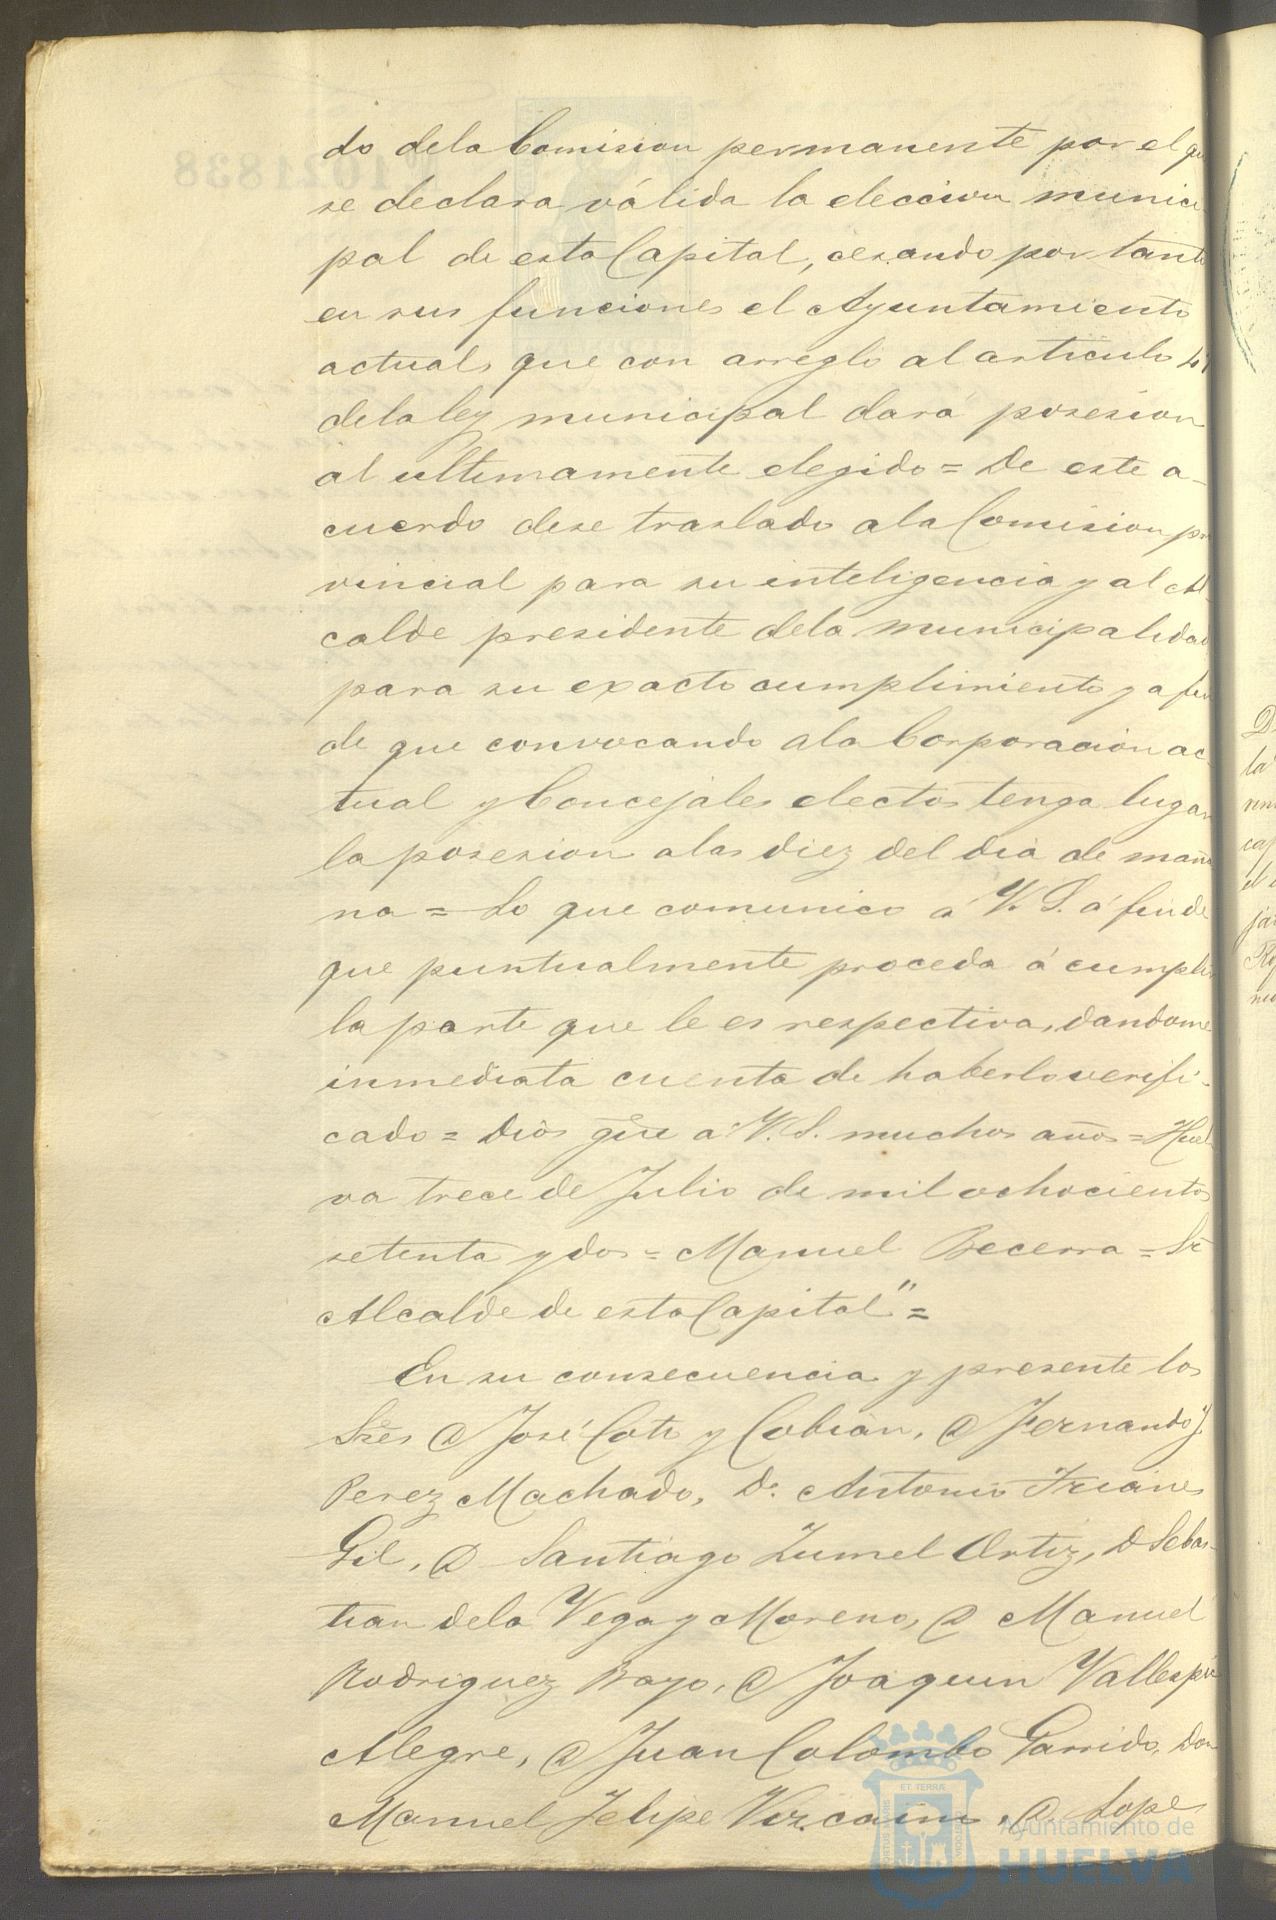 do dela Comision permanente por el que
se declara válida la eleccion munici-
pal de esta Capital, cesando por tanto
en sus funciones el Ayuntamiento
actual, que con arreglo al articulo
dela ley municipal dará posesion
al ultimamente elegido = De este a-
cuerdo dese traslado a la Comision pro
vincial para su inteligencia y al Al-
calde presidente dela municipalidad
para su exacto cumplimiento y a fin
de que convocando ala Corporacion ac-
tual y Concejales electos tenga lugar
la posesion alas diez del dia de maña
na = Lo que comunico á V. S. á fin de
que puntualmente proceda á cumplir
la parte que le es respectiva, dandome
inmediata cuenta de haberlo verifi-
cado = Dios gue a V. S. muchos años = Huel
va trece de Julio de mil ochocientos
setenta y dos = Manuel Becerra = Sr
Alcalde de esta Capital" =
En su consecuencia y presente los
Sres D José Coto y Cobian, D Fernando J.
Perez Machado, D. Antonio Trianes
Gil, D Santiago Zumel Ortiz, D Sebas-
tian dela Vega y Moreno, D Manuel
Rodriguez Bayo, D Joaquin Vallespin
Alegre, D Juan Colombo Garrido, Don
Manuel Felipe Vizcaino, D Lope
Ayuntamiento de
HUELVA